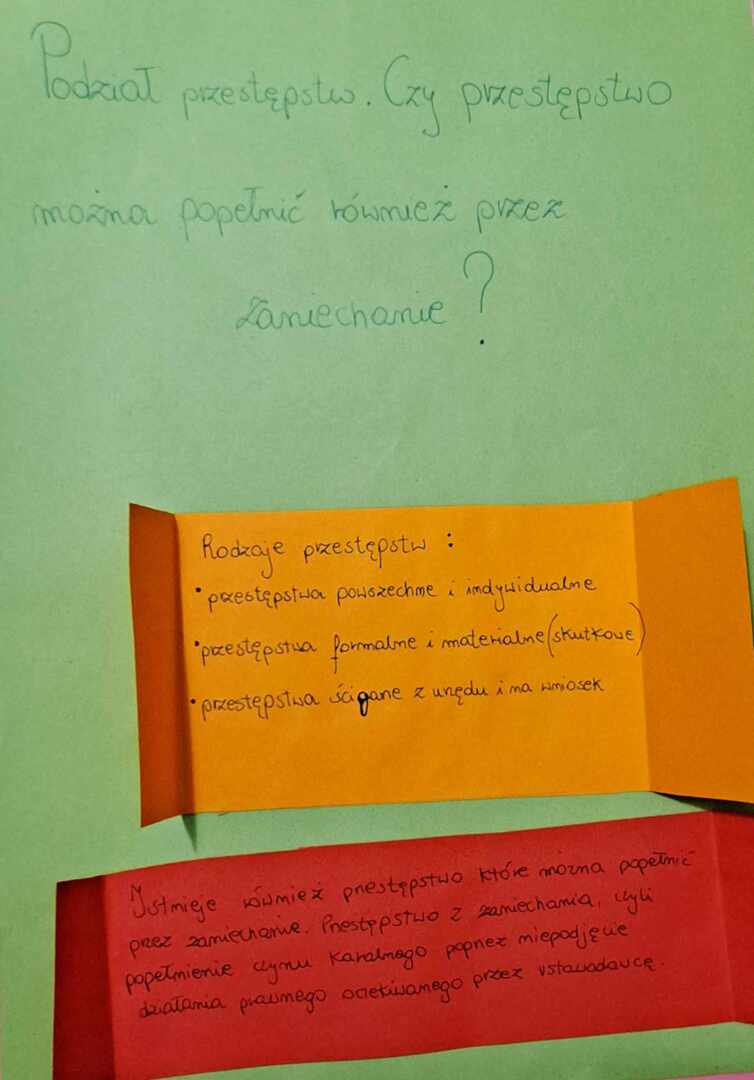 Podział przestępstw. Czy przestępstwo
można popełnić również przez
zaniechanie?
Rodzaje przestępstw :
• przestępstwa powszechne i indywidualne
• przestępstwa formalne i materialne (skutkowe)
• przestępstwa ścigane z urzędu i na wniosek
Istnieje również przestępstwo które można popełnić
przez zaniechanie. Przestępstwo z zaniechania, czyli
popełnienie czynu karalnego poprzez niepodjęcie
działania prawnego oczekiwanego przez ustawodawcę.